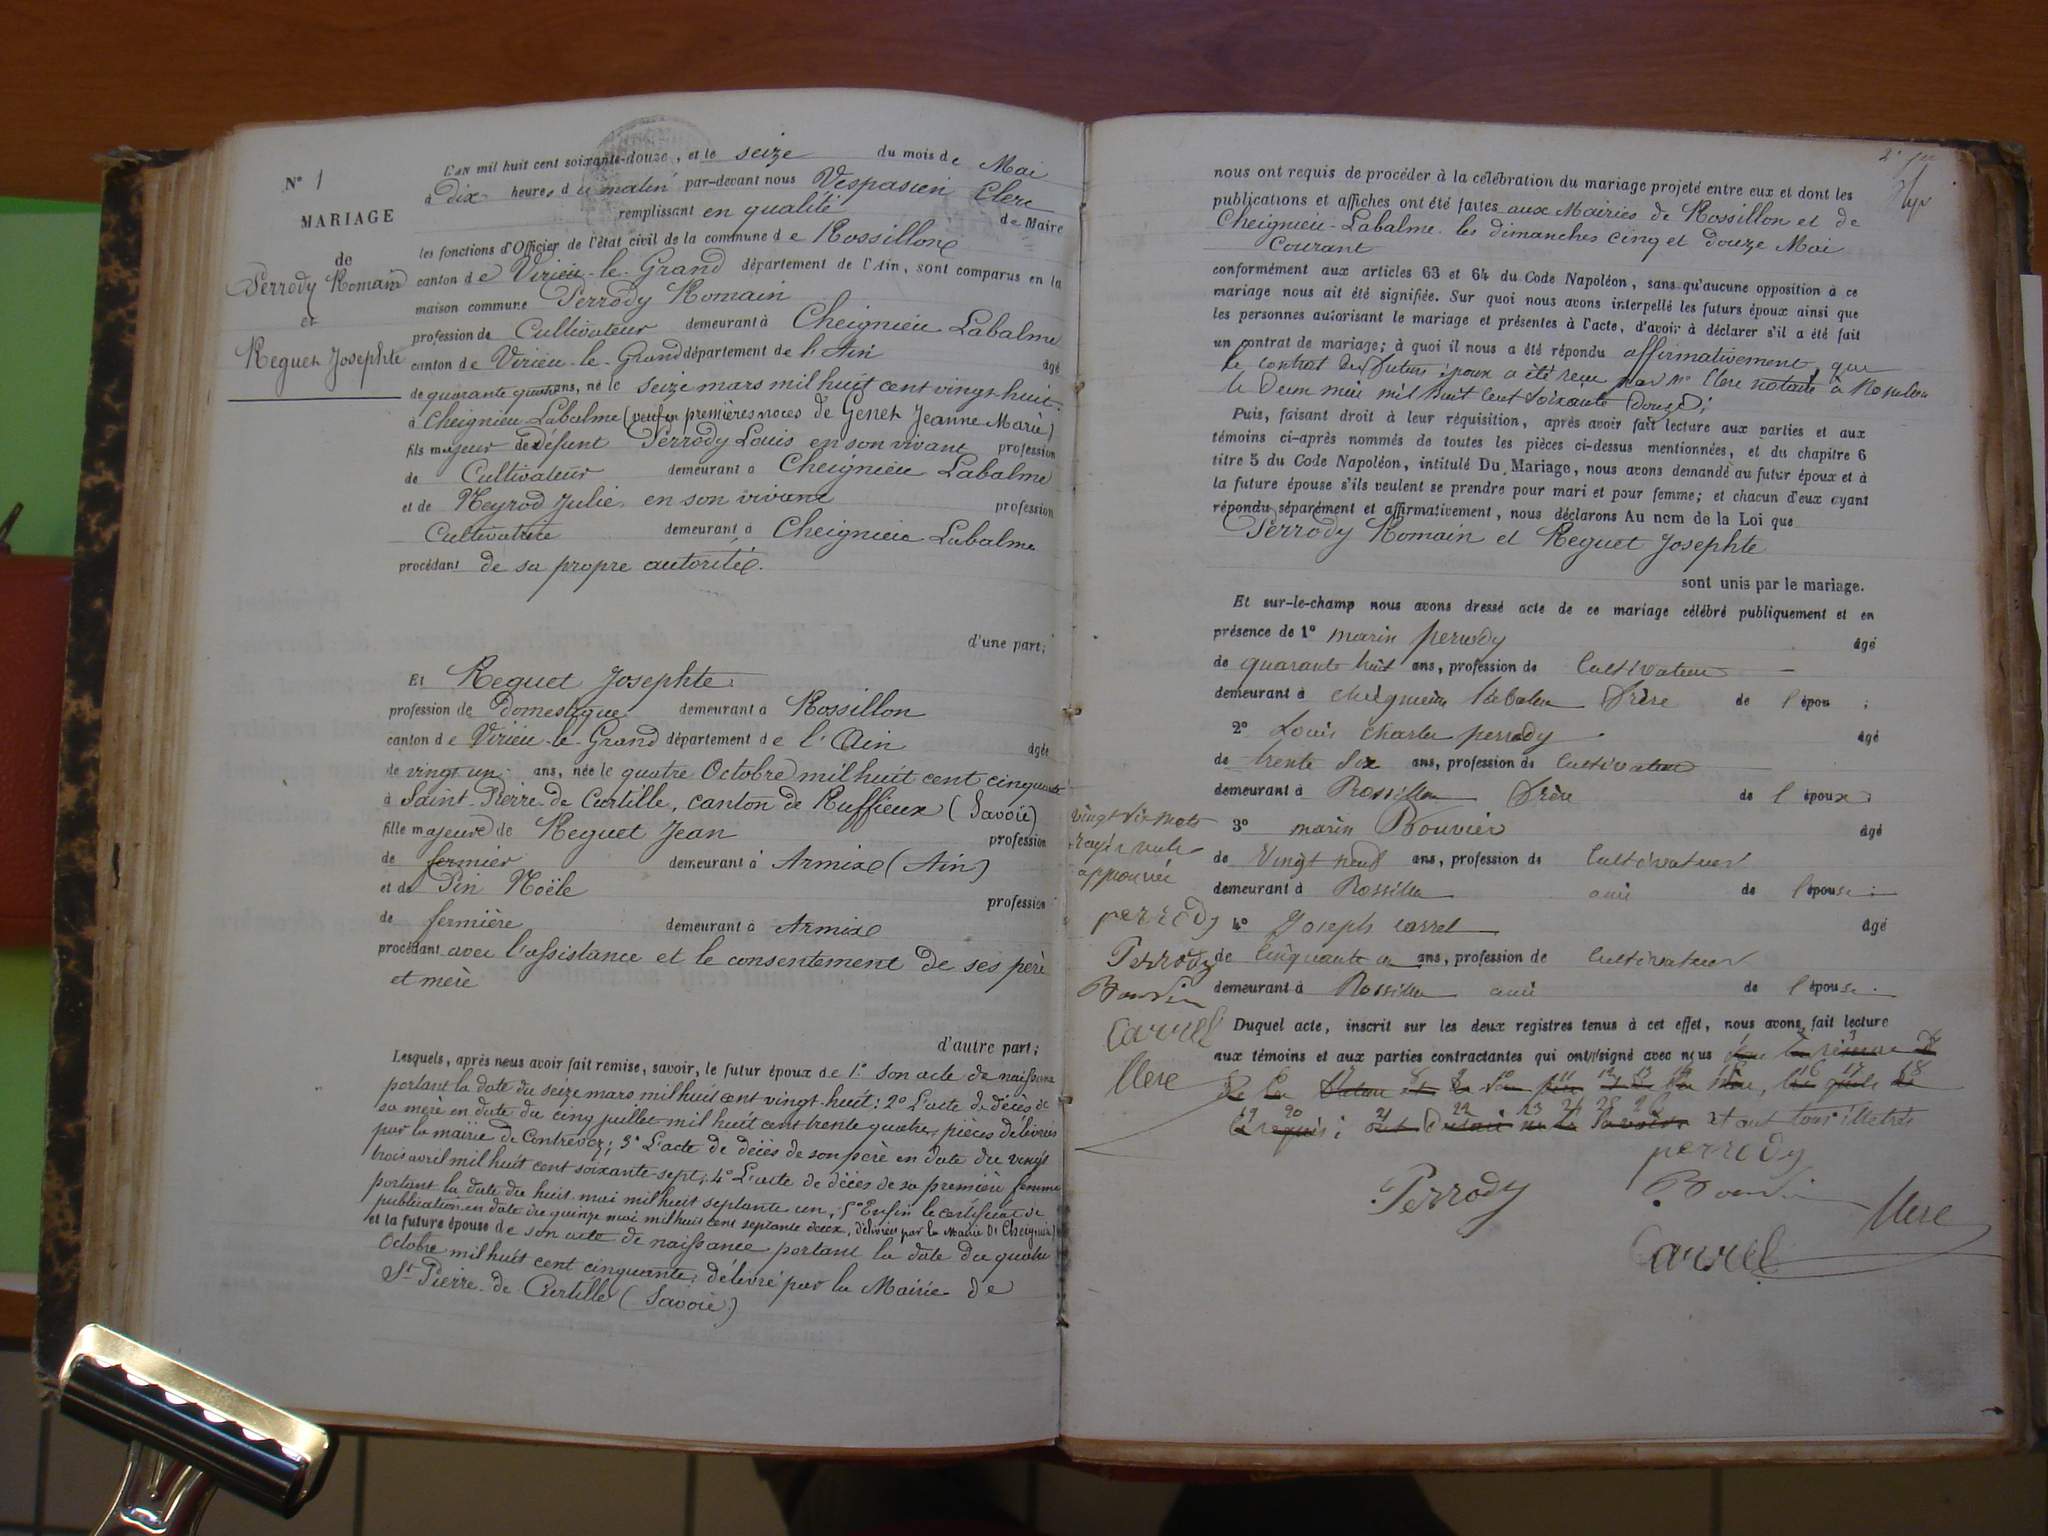 N° 1
MARIAGE
de
Perrody Romain
et
Reguet Josephte
L'AN mil huit cent soixante-douze, et le seize du mois de Mai
à Dix heures du matin par-devant nous Vespasien Clerc
remplissant en qualité de Maire
les fonctions d'Officier de l'état civil de la commune de Rossillon
canton de Virieu-le-Grand département de l'Ain, sont comparus en la
maison commune Perrody Romain
profession de Cultivateur demeurant à Cheignieu Labalme
canton de Virieu-le-Grand département de l'Ain âgé
de quarante quatre ans, né le seize mars mil huit cent vingt huit
à Cheignieu Labalme (veuf en premières noces de Genet Jeanne Marie)
fils majeur de défunt Perrody Louis en son vivant profession
de Cultivateur demeurant à Cheignieu Labalme
et de Neyrod Julie, en son vivant profession
Cultivatrice demeurant à Cheignieu Labalme
procédant de sa propre autorité.
d'une part;
Et Reguet Josephte
profession de Domestique demeurant à Rossillon
canton de Virieu-le-Grand département de l'Ain âgée
de vingt un ans, née le quatre Octobre mil huit cent cinquante
à Saint-Pierre-de Curtille, canton de Ruffieux (Savoie)
fille majeure de Reguet Jean profession
de fermier demeurant à Armix (Ain)
et de Pin Noële profession
de fermière demeurant à Armix
procédant avec l'assistance et le consentement de ses père
et mère
d'autre part;
Lesquels, après nous avoir fait remise, savoir, le futur époux de 1.° son acte de naissance
portant la date du seize mars mil huit cent vingt-huit: 2° L'acte de décès de
sa mère en date du cinq juillet mil huit cent trente quatre, pièces délivrées
par la mairie de Contrevoz; 3° L'acte de décès de son père en date du vingt
trois avril mil huit cent soixante-sept; 4° L'acte de décès de sa première femme
portant la date du huit mai mil huit septante un, 5° Enfin le certificat de
publication en date du quinze mai mil huit cent septante deux, délivrées par la Mairie de Cheignieu
et la future épouse de son acte de naissance portant la date du quatre
Octobre mil huit cent cinquante; délivré par la Mairie de
St Pierre-de Curtille (Savoie)
nous ont requis de procéder à la célébration du mariage projeté entre eux et dont les
publications et affiches ont été faites aux Mairies de Rossillon et de
Cheignieu-Labalme les dimanches cinq et douze Mai
Courant
conformément aux articles 63 et 64 du Code Napoléon, sans qu'aucune opposition à ce
mariage nous ait été signifiée. Sur quoi nous avons interpellé les futurs époux ainsi que
les personnes autorisant le mariage et présentes à l'acte, d'avoir à déclarer s'il a été fait
un contrat de mariage; à quoi il nous a été répondu affirmativement, que
le contrat des futurs époux a été reçu par Me Clerc notaire à Rossillon
le Deux mai mil huit cent soixante Douze;
Puis, faisant droit à leur réquisition, après avoir fait lecture aux parties et aux
témoins ci-après nommés de toutes les pièces ci-dessus mentionnées, et du chapitre 6
titre 5 du Code Napoléon, intitulé Du Mariage, nous avons demandé au futur époux et à
la future épouse s'ils veulent se prendre pour mari et pour femme; et chacun d'eux ayant
répondu séparément et affirmativement, nous déclarons Au nom de la Loi que
Perrody Romain et Reguet Josephte
sont unis par le mariage.
Et sur-le-champ nous avons dressé acte de ce mariage célébré publiquement et en
présence de 1° marin perrody âgé
de quarante huit ans, profession de Cultivateur
demeurant à cheignieu labalme frère de l'épou ;
2° Louis Charles perrody âgé
de trente six ans, profession de Cultivateur
demeurant à Rossillon frère de l'époux;
3° marin Bouvier âgé
de Vingt neuf ans, profession de Cultivateur
demeurant à Rossillon ami de l'épouse;
4° Joseph carrel âgé
de Cinquante un ans, profession de Cultivateur
demeurant à Rossillon ami de l'épouse.
Duquel acte, inscrit sur les deux registres tenus à cet effet, nous avons fait lecture
aux témoins et aux parties contractantes qui ont signé avec nous
et ont tous illetrés
vingt six mots
rayés nuls
approuvés
perrody
Perrody
Bouvier
Carrel
Clerc
perrody
Perrody
Bouvier
Clerc
Carrel